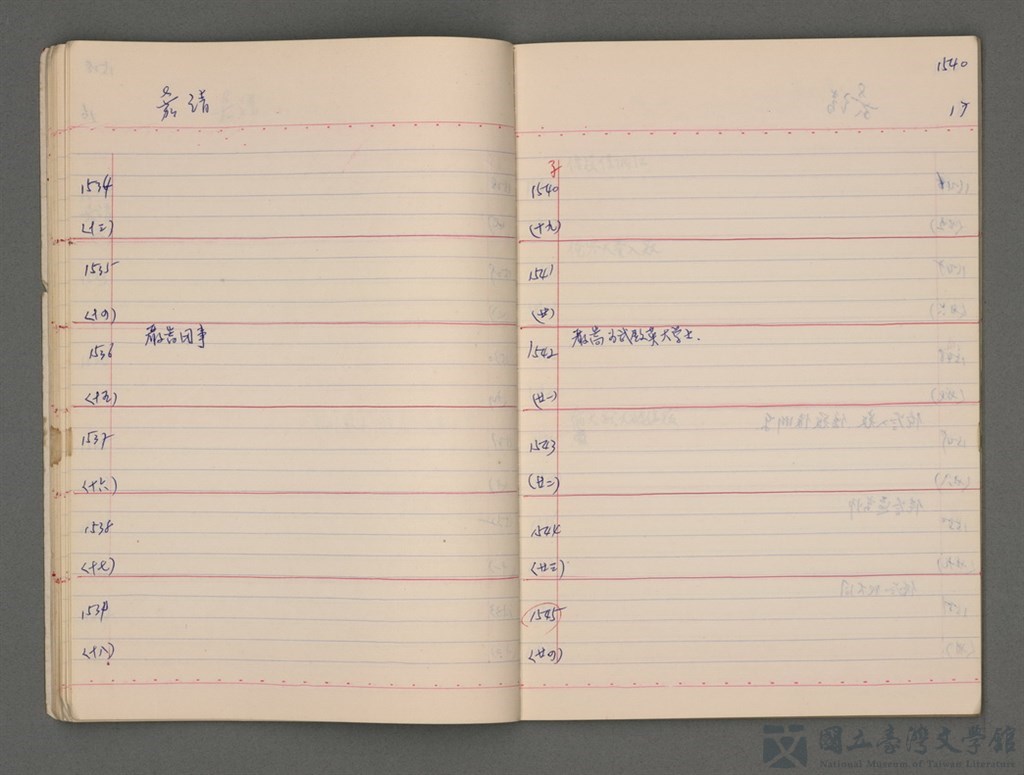 嘉靖
1534
(十三)
1535
(十四)
嚴嵩同事
1536
(十五)
1537
(十六)
1538
(十七)
1539
(十八)
1540
17
1540
(十九)
1541
(廿)
嚴嵩為武英大学士.
1542
(廿一)
1543
(廿二)
1544
(廿三)
1545
(廿四)
國立臺灣文學館
National Museum of Taiwan Literature